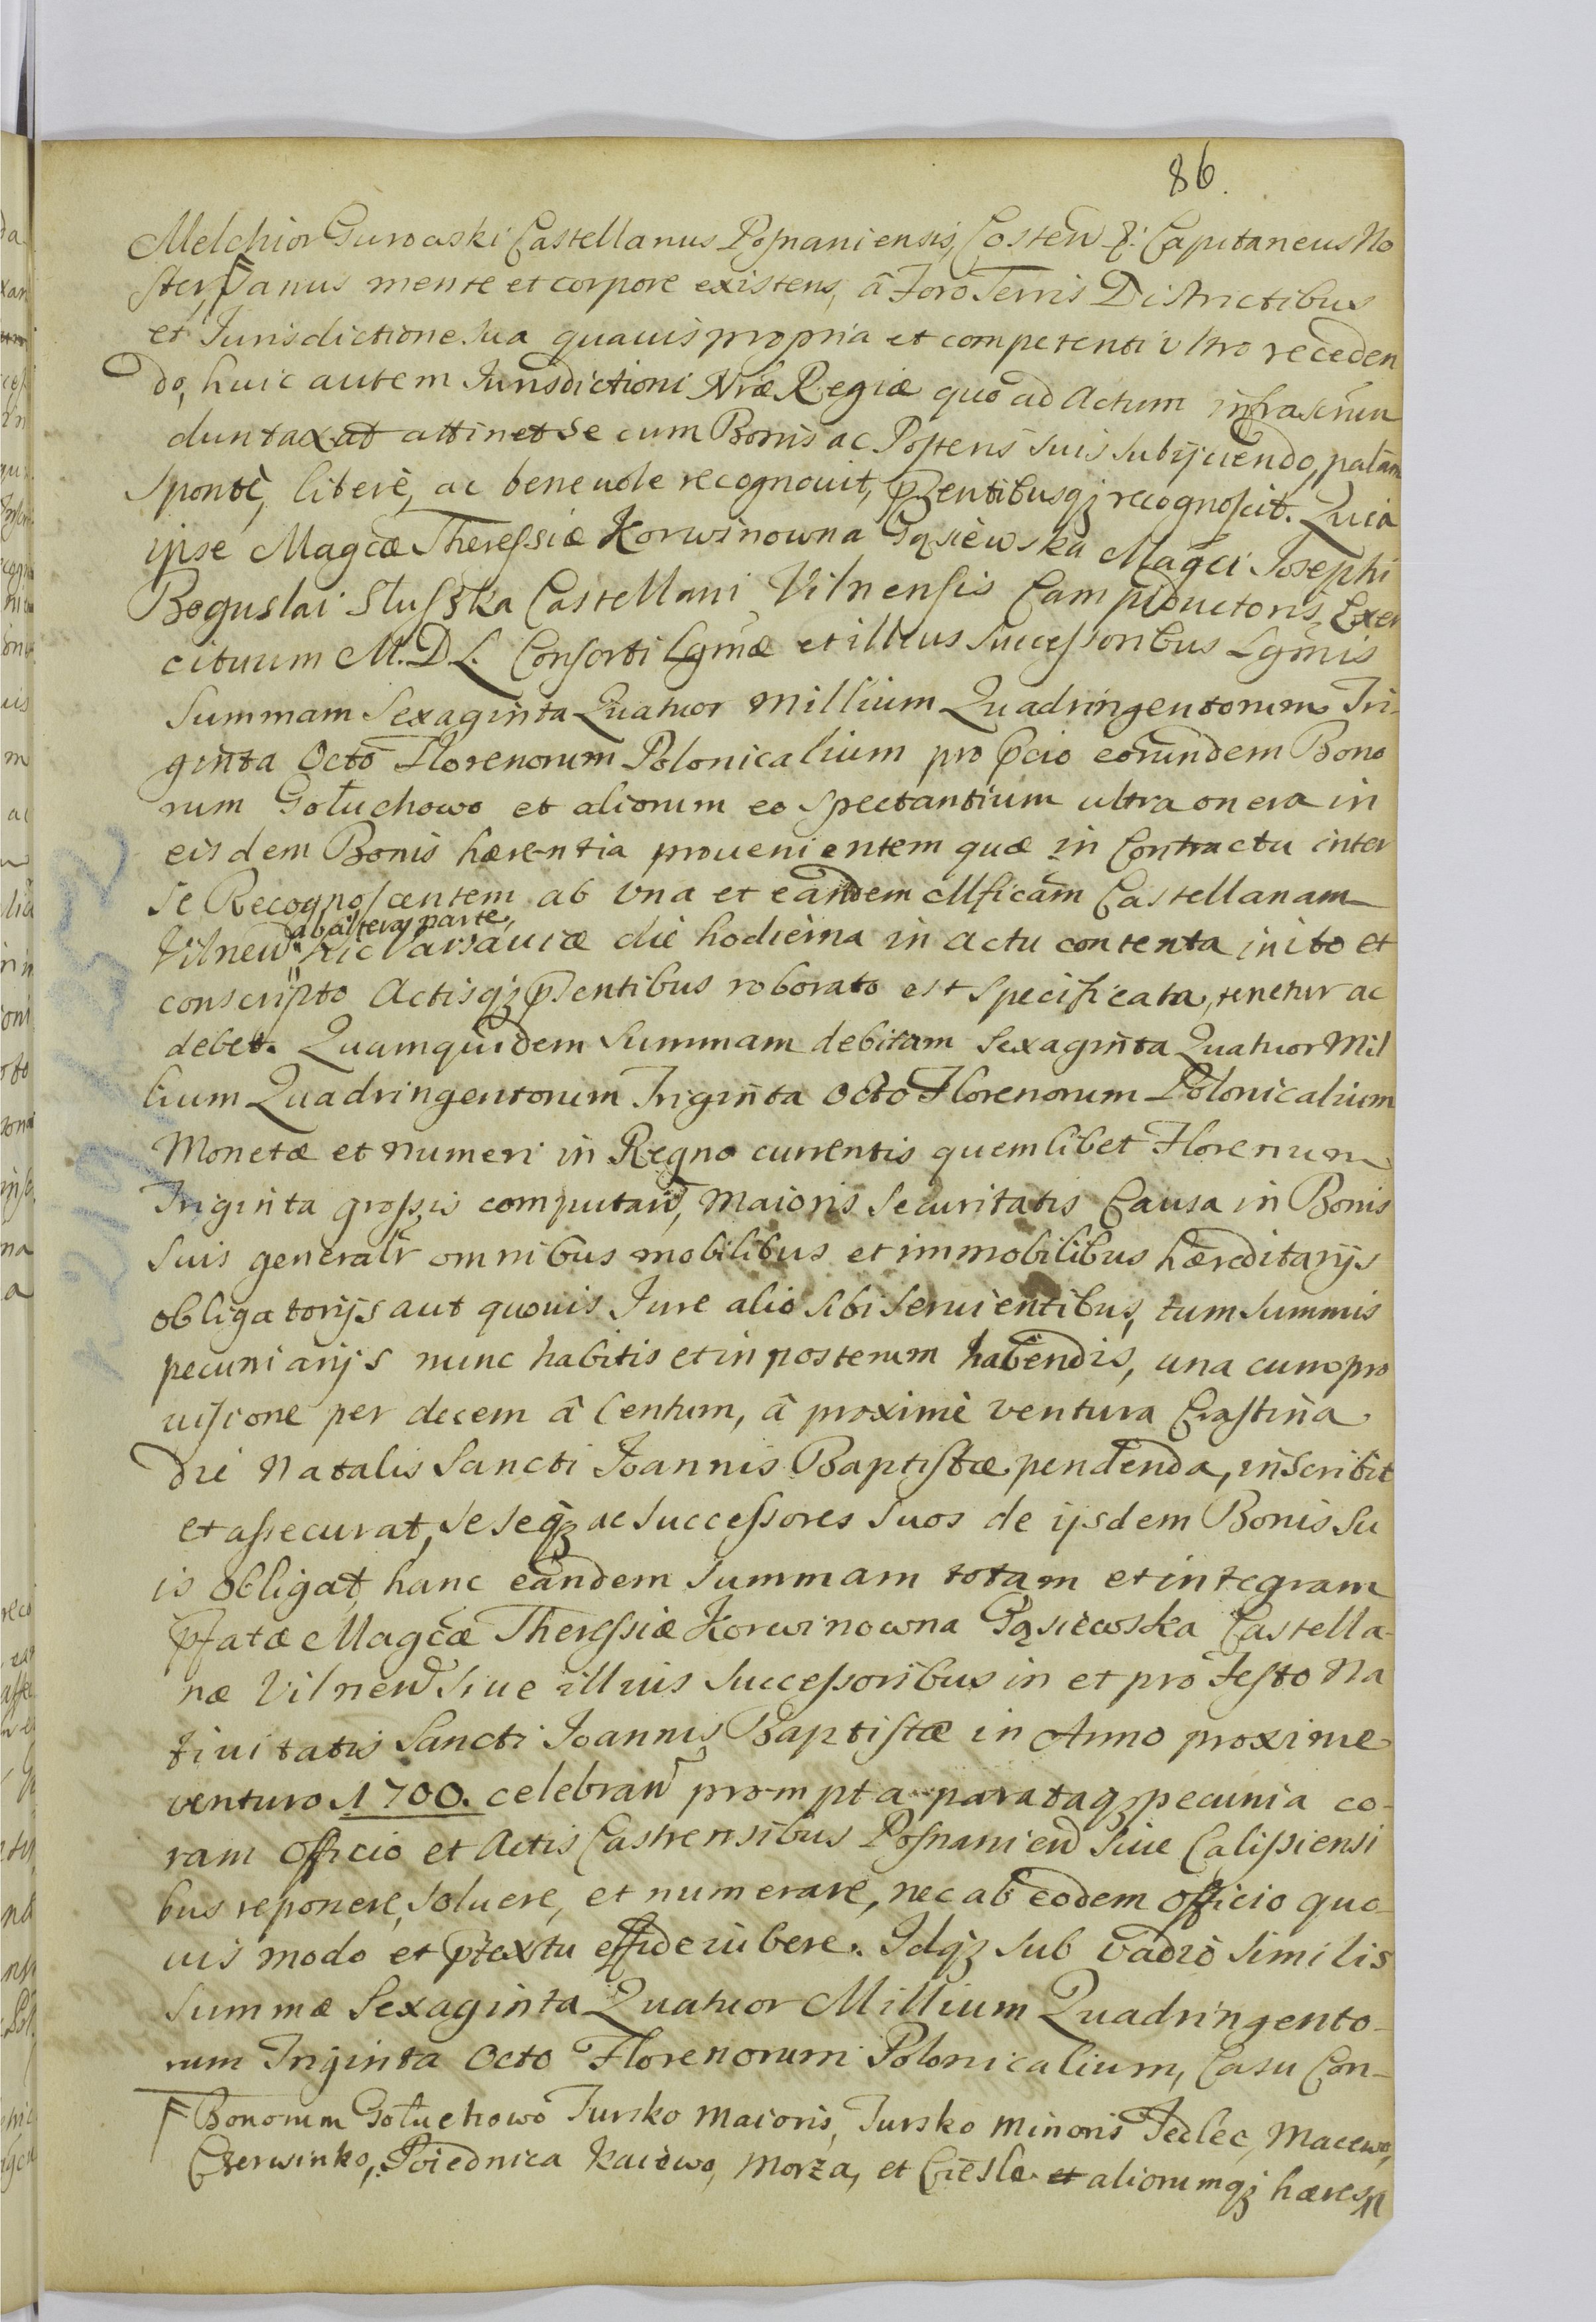 86.
Melchior Gurowski Castellanus Posnaniensis, Costen Capitaneus No
ster, Sanus mente et corpore existens, â Foro Terris Districtibus
et Jurisdictione sua quauis propria et competenti vltro receden
do, huic autem Jurisdictioni Nrӕ Regiӕ quo ad Actum infrascrip̃tum
duntaxat attinet se cum Bonis ac Posteris suis subijciendo, palam
sponte, liberè, ac beneuole recognouit, p̃sentibusq; recognoscit. Quia
ipse Mag̃cӕ Theressiӕ Korwinowna Gąsiewska Mag̃ci Josephi
Boguslai Słuszka Castellani Vilnensis Campiductoris Exer
cituum M. D. L. Consorti Lg̃mӕ et illius successoribus Lg̃mis
Summam Sexaginta Quatuor millium Quadringentorum Tri-
ginta Octo Florenorum Polonicalium pro p̃cio eorundem Bono
rum Gołuchowo et aliorum eo spectantium ultra onera in
eisdem Bonis hӕrentia prouenientem quӕ in Contractu inter
se Recognoscentem ab vna et eandem Mficam Castellanam
ab altera parte,
Vilnen hic Varsauiӕ die hodierna in actu contenta inito et
conscripto Actisq; p̃sentibus roborato est specificata, tenetur ac
debet. Quamquidem summam debitam sexaginta Quatuor Mil
lium Quadringentorum Triginta Octo Florenorum Polonicalium
Monetӕ et numeri in Regno currentis quemlibet Florenum
Triginta grossis computan, maioris securitatis Causa in Bonis
suis generalr omnibus mobilibus et immobilibus hӕreditarijs
obligatorijs aut quouis Jure alio sibi seruientibus, tum summis
pecuniarijs nunc habitis et in posterum habendis, una cum pro
uisione per decem â Centum, â proximè ventura Crastina
die Natalis Sancti Joannis Baptistӕ pendenda, inscribit
et assecurat, se seq; ac successores suos de ijsdem Bonis su
is obligat, hanc eandem summam totam et integram
p̃fatӕ Mag̃cӕ Theressiӕ Korwinowna Gąsiewska Castella-
nӕ Vilnen siue illius successoribus in et pro festo Na
tiuitatis Sancti Joannis Baptistӕ in Anno proxime
venturo 1700. celebran prompta parataq; pecunia co-
ram Officio et Actis Castrensibus Posnanien siue Calissiensi
bus reponere, soluere, et numerare, nec ab eodem officio quo-
uis modo et p̃textu
Idq; sub vadio similis
summӕ Sexaginta Quatuor Millium Quadringento-
rum Triginta Octo Florenorum Polonicalium, Casu Con-
Bonorum Gołuchowo Tursko maioris, Tursko minoris Jedlec, Macewo,
Czerwinko, Poiednica Kaiewo, Morza, et Ciesle et aliorumq; hӕres